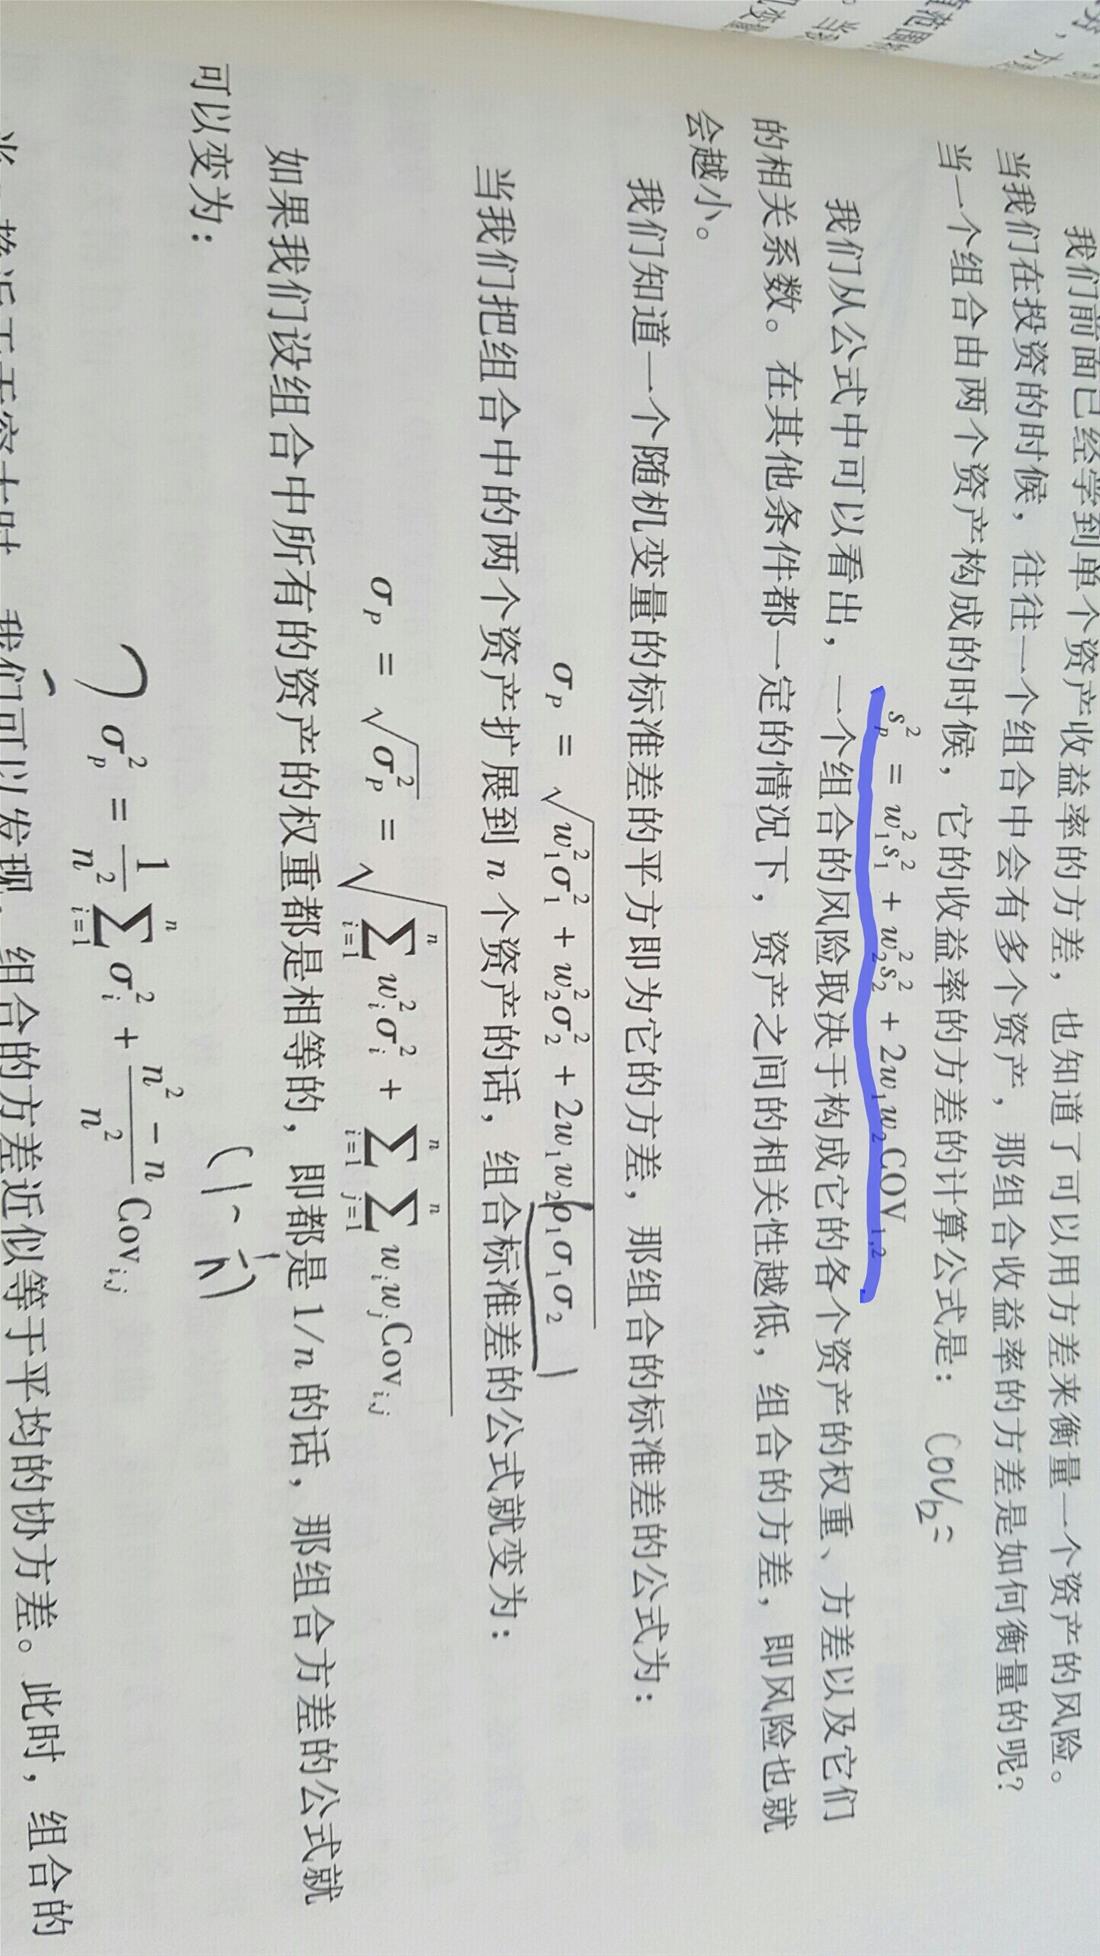 我们前面已经学到单个资产收益率的方差，也知道了可以用方差来衡量一个资产的风险。
当我们在投资的时候，往往一个组合中会有多个资产，那组合收益率的方差是如何衡量的呢？
当一个组合由两个资产构成的时候，它的收益率的方差的计算公式是： COV₁₂=
s_p² = w₁²s₁² + w₂²s₂² + 2w₁w₂COV₁,₂
我们从公式中可以看出，一个组合的风险取决于构成它的各个资产的权重、方差以及它们
的相关系数。在其他条件都一定的情况下，资产之间的相关性越低，组合的方差，即风险也就
会越小。
我们知道一个随机变量的标准差的平方即为它的方差，那组合的标准差的公式为：
σ_p = √(w₁²σ₁² + w₂²σ₂² + 2w₁w₂ρ₁σ₁σ₂)
当我们把组合中的两个资产扩展到 n 个资产的话，组合标准差的公式就变为：
σ_p = √(σ_p²) = √(∑_{i=1}^{n} w_i²σ_i² + ∑_{i=1}^{n} ∑_{j=1}^{n} w_i w_j Cov_{i,j})
如果我们设组合中所有的资产的权重都是相等的，即都是 1/n 的话，那组合方差的公式就
可以变为：
(1-1/n)
σ_p² = 1/n² ∑_{i=1}^{n} σ_i² + (n² - n)/n² Cov_{i,j}
我们可以发现，组合的方差近似等于平均的协方差。此时，组合的